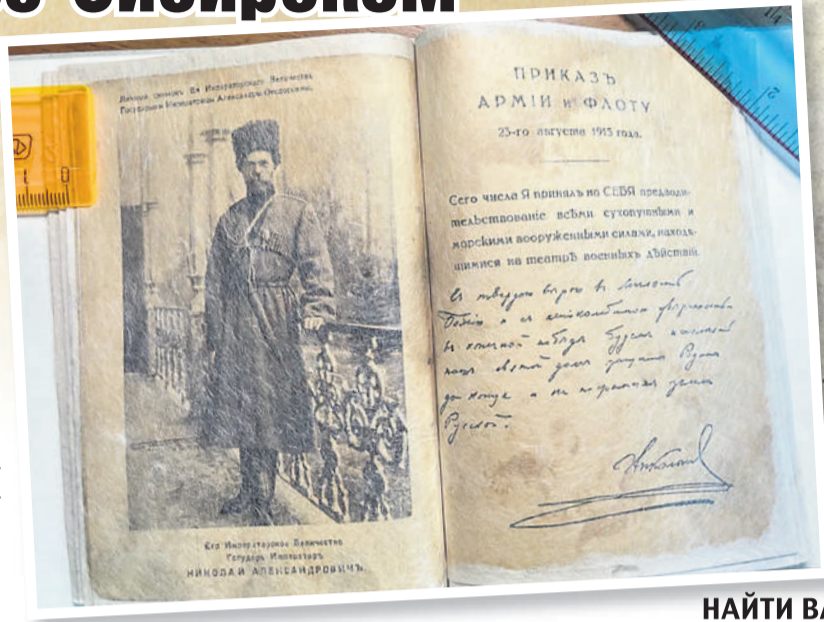 Сибирском
Личный снимок Ея Императорского Величества
Государыни Императрицы Александры Феодоровны.
Его Императорское Величество
Государь Императоръ
НИКОЛАЙ АЛЕКСАНДРОВИЧЪ.
ПРИКАЗЪ
АРМІИ и ФЛОТУ
23-го августа 1915 года.
Сего числа Я принялъ на СЕБЯ предводи-
тельствованіе всѣми сухопутными и
морскими вооруженными силами, находя-
щимися на театрѣ военныхъ дѣйствій.
Съ твердою вѣрою въ милость
Божію и съ непоколебимою увѣренностью
въ конечной побѣдѣ будемъ исполнять
нашъ святой долгъ защиты Родины
до конца и не посрамимъ земли
Русской.
Николай
НАЙТИ ВА